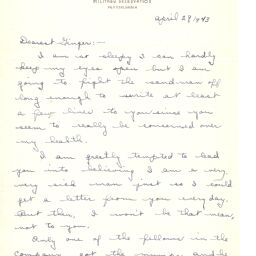 MILITARY RESERVATION
April 29 1943
Dearest Ginger:-
I am so sleepy I can hardly
keep my eyes open but I am
going to fight the sandman off
long enough to write at least
a few lines to you since you
seem to really be concerned over
my health.
I am greatly tempted to lead
you into believing I am a very,
very sick man just so I could
get a letter from you everyday.
But then, I won't be that mean,
not to you.
Only one of the fellows in the
company got the mumps and he